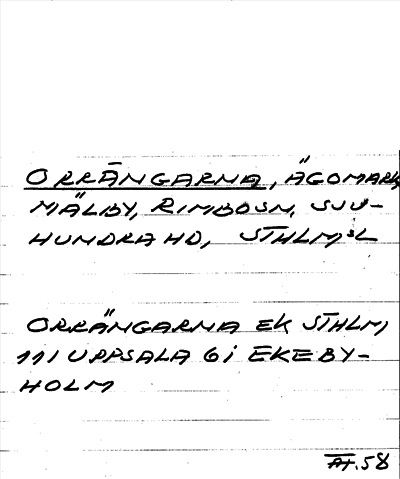 ORRÄNGARNA, ÄGOMARK,
MÄLBY, RIMBOSN, SJU-
HUNDRA HD, STHLM:S L
ORRÄNGARNA EK STHLM,
111 UPPSALA 6 i EKEBY-
HOLM
AT.58